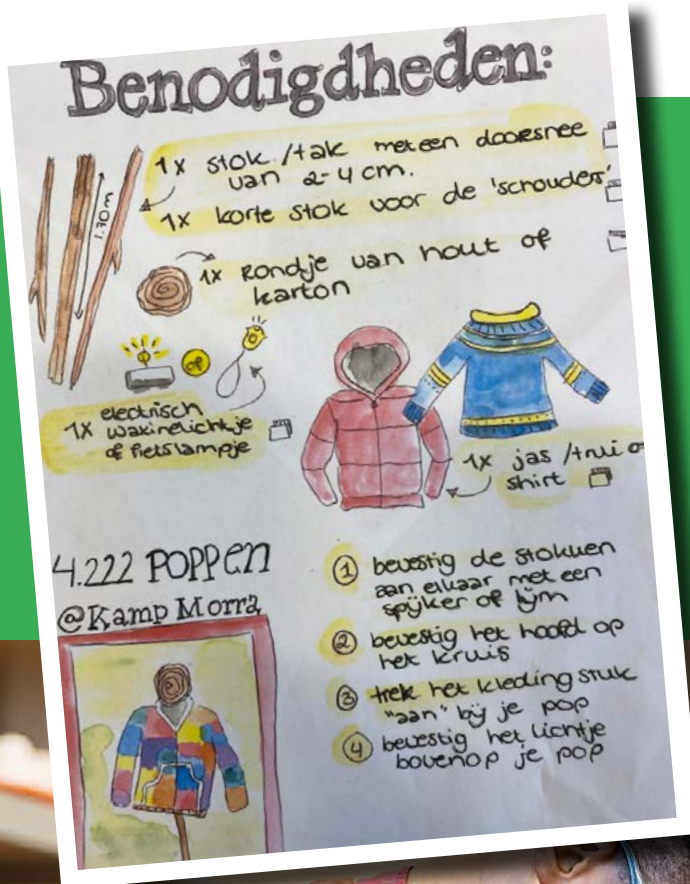 Benodigdheden:
1x stok /tak met een doorsnee
van 2-4 cm.
1x korte stok voor de 'schouder'
1.70 m
1x Rondje van hout of
karton
of
1x electrisch
waxinelichtje
of fietslampje
1x jas /trui o
shirt
4.222 POPPEN
@Kamp Morra
1 bevestig de stokken
aan elkaar met een
spijker of lijm
2 bevestig het hoofd op
het kruis
3 trek het kleding stuk
"aan" bij je pop
4 bevestig het lichtje
bovenop je pop